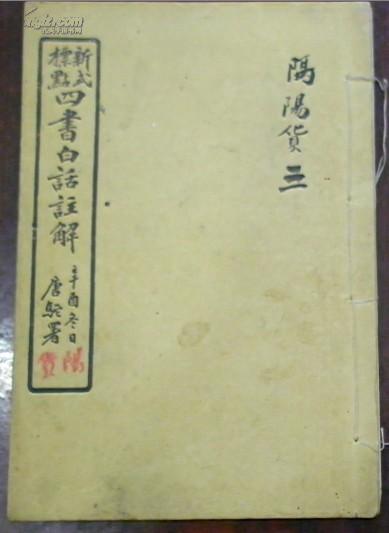 隅陽貨三
新式
標點
四書白話註解
辛酉冬日
唐駝署
陽貨